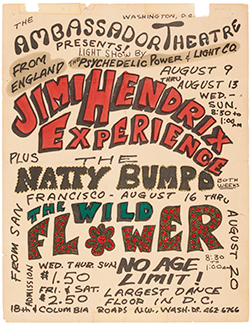 WASHINGTON, D.C.
THE AMBASSADOR THEATRE
PRESENTS! LIGHT SHOW BY
THE PSYCHEDELIC POWER & LIGHT CO.
FROM ENGLAND
AUGUST 9
THRU
AUGUST 13
WED.-
SUN.
8:30
to
1:00am
JIMI HENDRIX
EXPERIENCE
PLUS THE
NATTY BUMPO
BOTH WEEKS
FROM SAN FRANCISCO - AUGUST 16 THRU AUGUST 20
THE WILD
FLOWER
8:30
TO
1:00am
ADMISSION
WED. THUR. SUN.
$1.50
FRI. & SAT.
$2.50
NO AGE
LIMIT!
LARGEST DANCE
FLOOR IN D.C.
18th & COLUMBIA ROADS N.W., WASH. DC. 462-6766